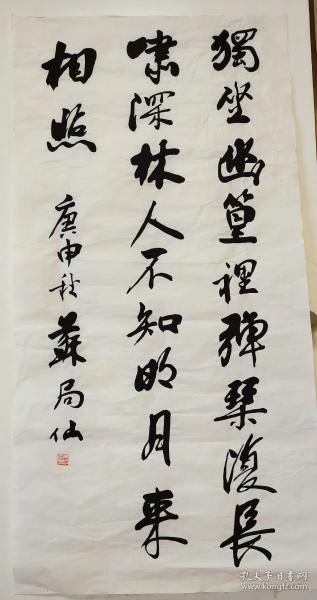 獨坐幽篁裡彈琴復長
嘯深林人不知明月來
相照
庚申秋
蘇局仙
孔夫子旧书网